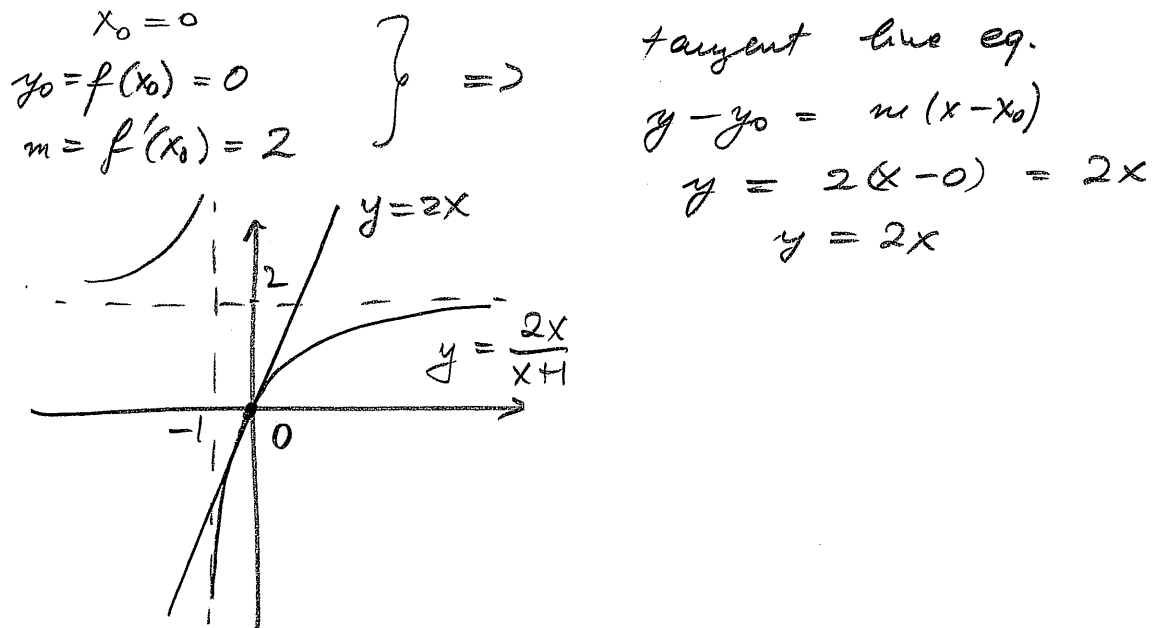 x₀ = 0
y₀ = f(x₀) = 0
m = f'(x₀) = 2
=>
tangent line eq.
y - y₀ = m (x - x₀)
y = 2(x - 0) = 2x
y = 2x
y = 2x
2
y = 2x/(x+1)
-1
0